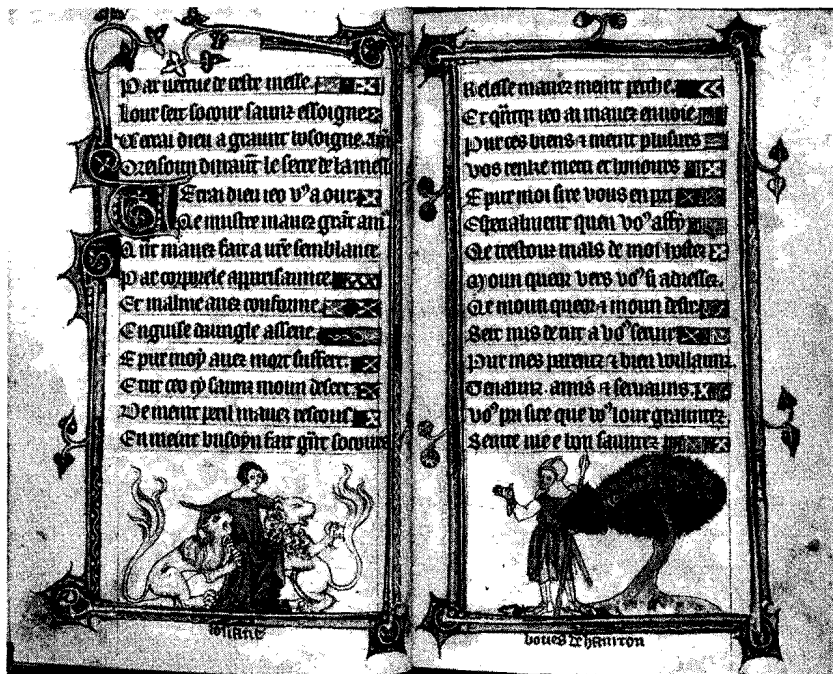 Par vertue de ceste messe
Lour seit socour saunz essoigne
Oreisoun devaunt le secre de la mess
Qe mustre mauez graūt am
Qūt mauez fait a vr̄e semblance
Par corporele apparisaunce
Et malme auez conforme
En guise daungle
E pur moy auez mort suffert
E tut ceo saunz moun desert
De meint peril mauez rescous
En meint busoyn fait gūt socours
Relesse mauez meint peche
Et qūtqe ieo ai mauez enuoie
Pur ces biens ⁊ meint plusurs
Vos renke merci et honours
E pur moi sire vous en pri
Especialment queu vo⁹ affy
Qe trestouz mals de moi
Moun queor vers vo⁹ si adressez
Qe moun queor ⁊ moun desir
Seit mis de tut a vo⁹ seruir
Pur mes parentz ⁊ bien
Tenauntz amis ⁊ seruauns
Vo⁹ pri sire que vo⁹ lour grauntez
Seinte vie e bon
iosiane
boues de hamton